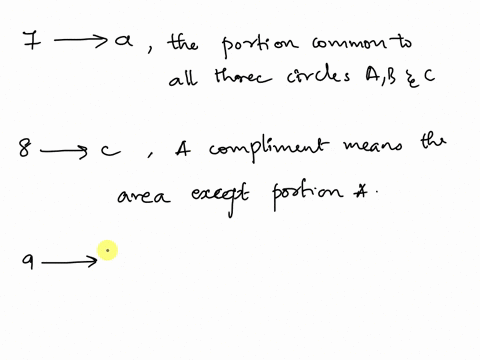 7 → a, the portion common to
all three circles A, B & C
8 → c, A compliment means the
area except portion A.
9 →